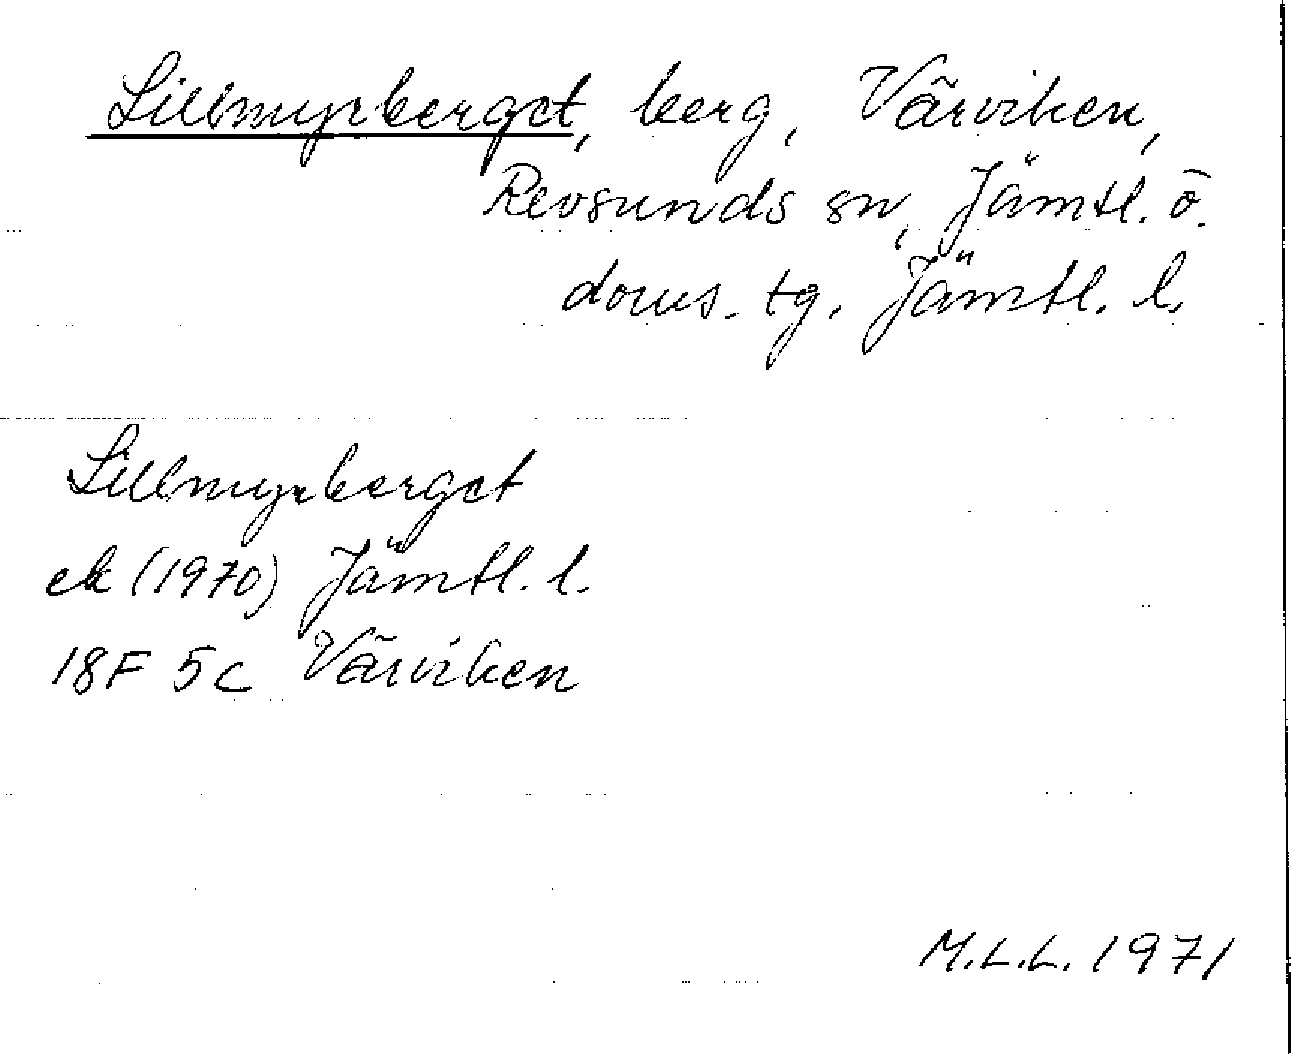 Lillmyrberget, berg, Värviken,
Revsunds sn, Jämtl. ö.
doms. tg. Jämtl. l.
Lillmyrberget
ek (1970) Jämtl. l.
18F 5c Värviken
M.L.L. 1971